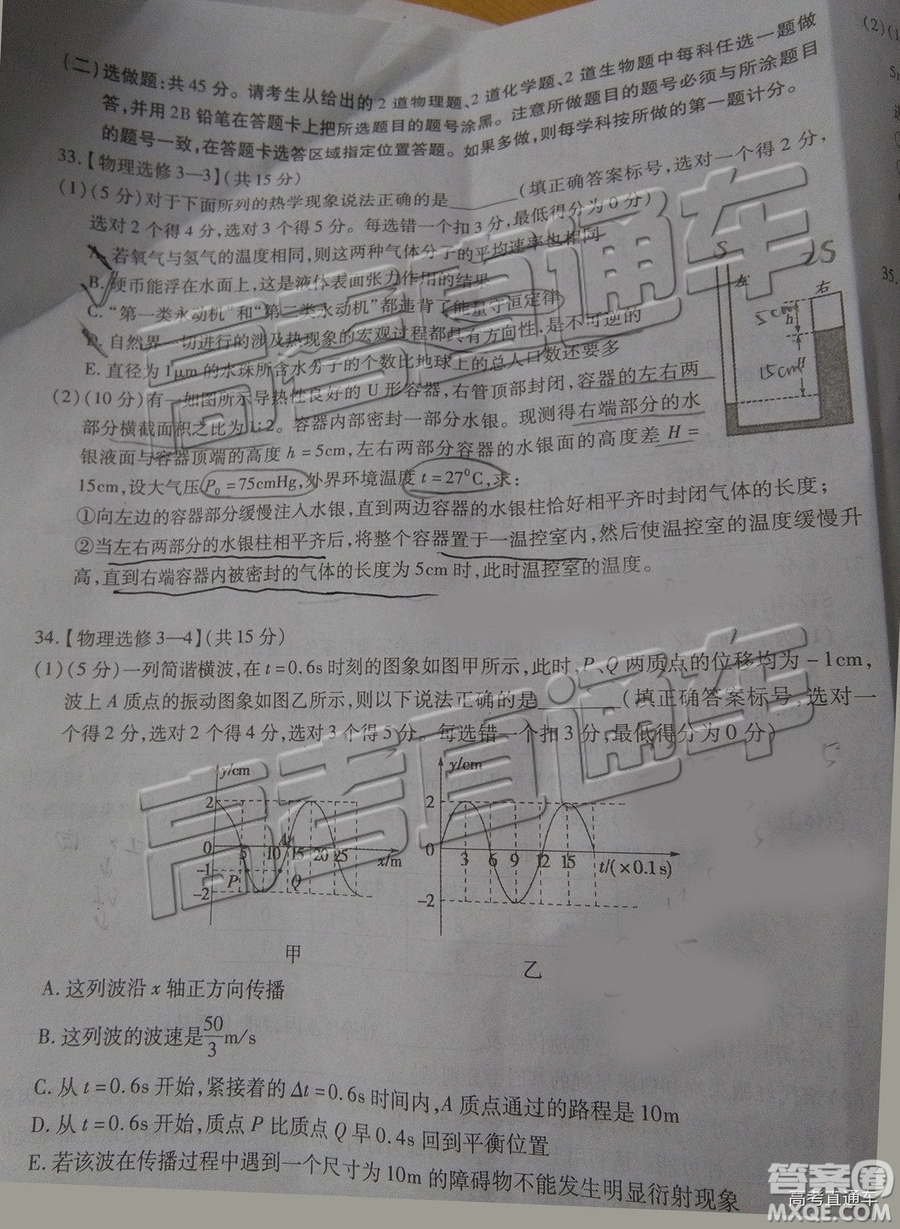 (二)选做题:共45分。请考生从给出的2道物理题、2道化学题、2道生物题中每科任选一题做
答,并用2B铅笔在答题卡上把所选题目的题号涂黑。注意所做题目的题号必须与所涂题目
的题号一致,在答题卡选答区域指定位置答题。如果多做,则每学科按所做的第一题计分。
33.【物理选修3—3】(共15分)
(1)(5分)对于下面所列的热学现象说法正确的是______(填正确答案标号,选对一个得2分,
选对2个得4分,选对3个得5分。每选错一个扣3分,最低得分为0分)
A.若氧气与氢气的温度相同,则这两种气体分子的平均速率也相同
B.硬币能浮在水面上,这是液体表面张力作用的结果
C.“第一类永动机”和“第二类永动机”都违背了能量守恒定律
D.自然界一切进行的涉及热现象的宏观过程都具有方向性,是不可逆的
E.直径为1μm的水珠所含水分子的个数比地球上的总人口数还要多
(2)(10分)有一如图所示导热性良好的U形容器,右管顶部封闭,容器的左右两
部分横截面积之比为1:2。容器内部密封一部分水银。现测得右端部分的水
银液面与容器顶端的高度h=5cm,左右两部分容器的水银面的高度差H=
15cm,设大气压P₀=75cmHg,外界环境温度t=27℃,求:
①向左边的容器部分缓慢注入水银,直到两边容器的水银柱恰好相平齐时封闭气体的长度;
②当左右两部分的水银柱相平齐后,将整个容器置于一温控室内,然后使温控室的温度缓慢升
高,直到右端容器内被密封的气体的长度为5cm时,此时温控室的温度。
S
2S
左
右
5cm
h
15cm
H
34.【物理选修3—4】(共15分)
(1)(5分)一列简谐横波,在t=0.6s时刻的图象如图甲所示,此时,P、Q两质点的位移均为-1cm,
波上A质点的振动图象如图乙所示,则以下说法正确的是______(填正确答案标号,选对一
个得2分,选对2个得4分,选对3个得5分。每选错一个扣3分,最低得分为0分)
y/cm
2
0
-1
-2
5 10 15 20 25
x/m
P
Q
A
甲
y/cm
2
0
-2
3 6 9 12 15
t/(×0.1s)
乙
A.这列波沿x轴正方向传播
B.这列波的波速是50/3m/s
C.从t=0.6s开始,紧接着的Δt=0.6s时间内,A质点通过的路程是10m
D.从t=0.6s开始,质点P比质点Q早0.4s回到平衡位置
E.若该波在传播过程中遇到一个尺寸为10m的障碍物不能发生明显衍射现象
(2)(1
35.
高考直通车
高考直通车
答案圈
高考直通车
MXQE.COM